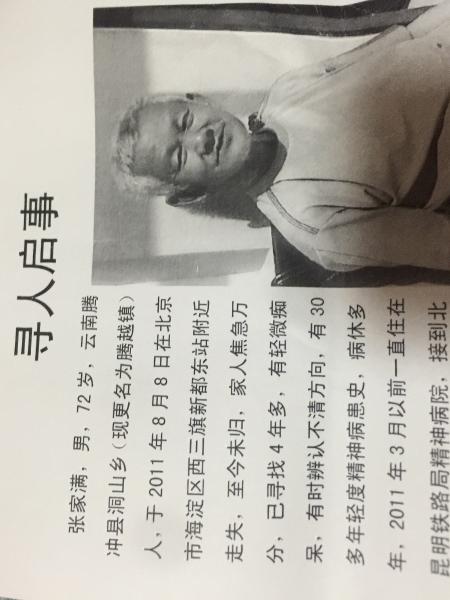 寻人启事
张家满，男，72岁，云南腾
冲县洞山乡（现更名为腾越镇）
人，于2011年8月8日在北京
市海淀区西三旗新都东站附近
走失，至今未归，家人焦急万
分，已寻找4年多，有轻微痴
呆，有时辨认不清方向，有30
多年轻度精神病患史，病休多
年，2011年3月以前一直住在
昆明铁路局精神病院，接到北